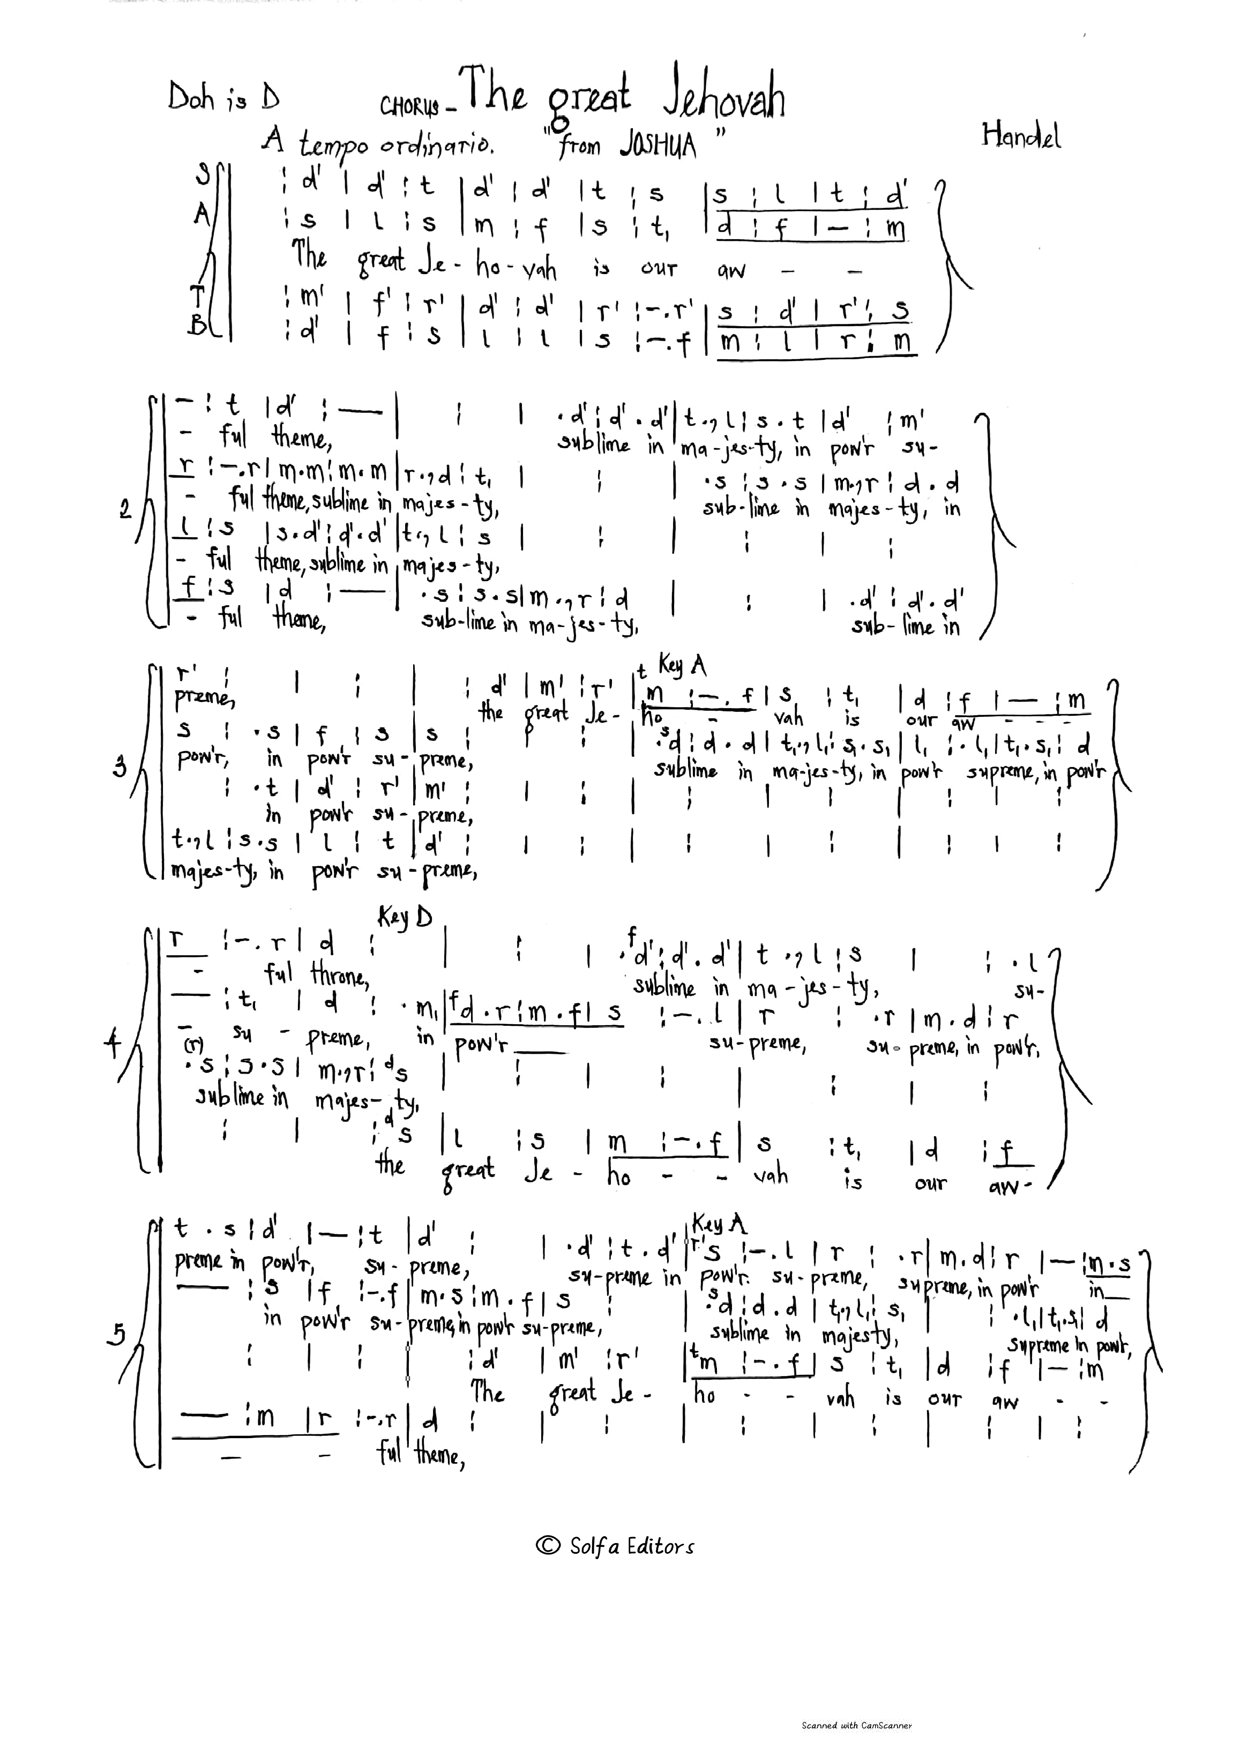 Doh is D
CHORUS - The great Jehovah
A tempo ordinario. "from JOSHUA"
Handel
S : d' | d' : t | d' : d' | t : s | s : l | t : d'
A : s | l : s | m : f | s : t, | d : f | — : m
The great Je - ho - vah is our aw - -
T : m' | f' : r' | d' : d' | r' : -. r' | s : d' | r' : s
B : d' | f : s | l : l | s : -. f | m : l | r : m
2
- : t | d' : — | : | . d' : d' . d' | t ., l : s . t | d' : m'
- ful theme, sublime in ma-jes-ty, in pow'r su-
r : -. r | m . m : m . m | r ., d : t, | : | . s : s . s | m ., r : d . d
- ful theme, sublime in majes-ty, sub-line in majes-ty, in
l : s | s . d' : d' . d' | t ., l : s | : | : | :
- ful theme, sublime in majes-ty,
f : s | d : — | . s : s . s | m ., r : d | : | . d' : d' . d'
- ful theme, sub-lime in ma-jes-ty, sub-lime in
3
Key A
r' : | : | : d' | m' : r' | t m : -. f | s : t, | d : f | — : m
preme, the great Je- ho - vah is our aw - - -
s : . s | f : s | s : | : | . s d : d . d | t, ., l, : s, . s, | l, : . l, | t, . s, : d
pow'r, in pow'r su-preme, sublime in ma-jes-ty, in pow'r supreme, in pow'r
: . t | d' : r' | m' : | : | : | : | : | :
in pow'r su-preme,
t ., l : s . s | l : t | d' : | : | : | : | : | :
majes-ty, in pow'r su-preme,
4
Key D
r : -. r | d : | : | . f d' : d' . d' | t ., l : s | : . l
- ful throne, sublime in ma-jes-ty, su-
— : t, | d : . m, | f d . r : m . f | s : -. l | r : . r | m . d : r
- su - preme, in pow'r su-preme, su-preme, in pow'r,
(r)
. s : s . s | m ., r : d s | : | : | : | :
sublime in majes-ty,
: | : d s | l : s | m : -. f | s : t, | d : f
the great Je - ho - - vah is our aw-
5
Key A
t . s : d' | — : t | d' : | . d' : t . d' | r' s : -. l | r : . r | m . d : r | — : m . s
preme in pow'r, su-preme, su-preme in pow'r. su-preme, supreme, in pow'r in
— : s | f : -. f | m . s : m . f | s : | . s d : d . d | t, ., l, : s, | : . l, | t, . s, : d
in pow'r su-preme, in pow'r su-preme, sublime in majesty, supreme in pow'r,
: | : | : d' | m' : r' | t m : -. f | s : t, | d : f | — : m
The great Je - ho - - vah is our aw - -
— : m | r : -. r | d : | : | : | : | : | :
- - ful theme,
© Solfa Editors
Scanned with CamScanner